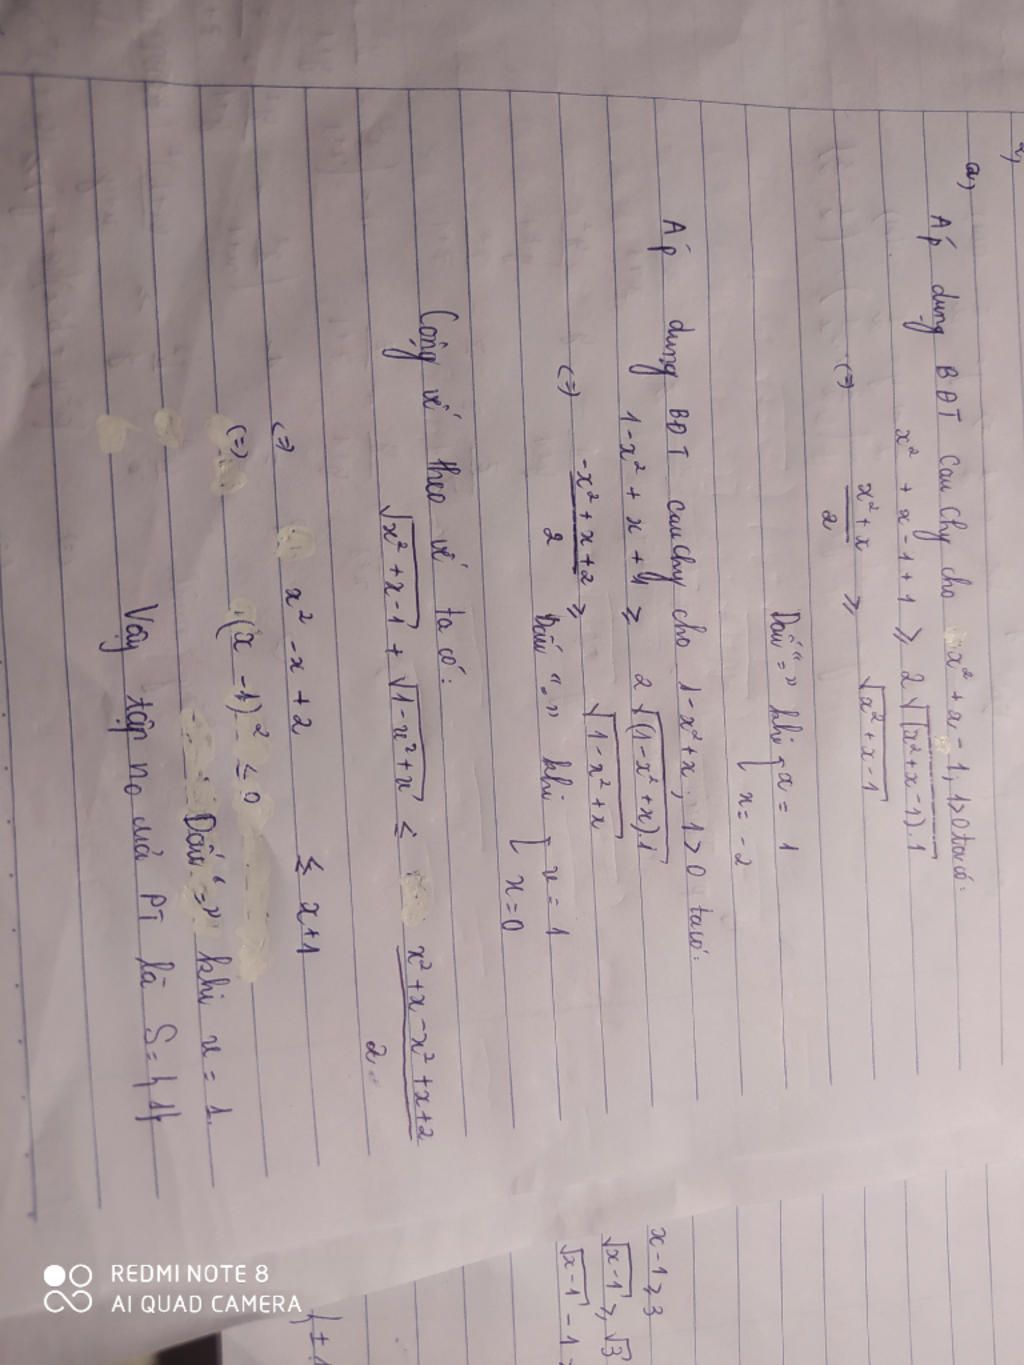 a)
Áp dụng BĐT Cauchy cho x² + x - 1, 1>0 ta có:
x² + x - 1 + 1 ≥ 2√(x²+x-1).1
(=) x² + x / 2 ≥ √x²+x-1
Dấu "=" khi { x = 1
{ x = -2
Áp dụng BĐT Cauchy cho 1-x²+x; 1>0 ta có:
1-x² + x + 1 ≥ 2√(1-x²+x).1
(=) -x² + x + 2 / 2 ≥ √1-x²+x
Dấu "=" khi { x = 1
{ x = 0
Cộng vế theo vế ta có:
√x²+x-1 + √1-x²+x ≤ x²+x-x²+x+2 / 2
(=) x² - x + 2 ≤ x+1
(=) (x -1)² ≤ 0
Dấu "=" khi x = 1.
Vậy tập no của PT là S={1}
x-1 ≥ 3
√x-1 ≥ √3
√x-1 - 1
REDMI NOTE 8
AI QUAD CAMERA